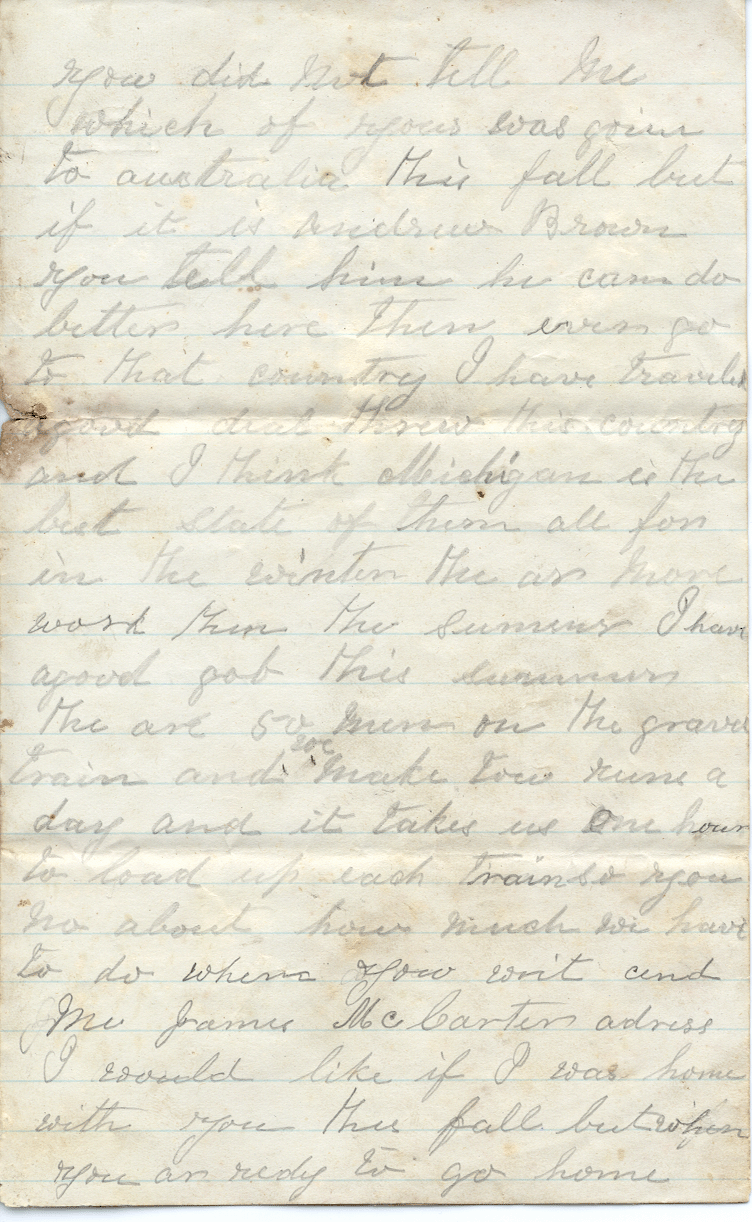 you did not tell me
which of yous was goin
to australia this fall but
if it is Andrew Brown
you tell him he can do
better here then ever go
to that country I have traveled
agood deal threw this country
and I think Michigan is the
best state of them all for
in the winter the ar more
work then the sumeur I have
agood gob this summer
the are 50 men on the gravel
train and we make tow runs a
day and it takes us one hour
to load up each train so you
no about how much we have
to do when you writ cend
me James McCarter adress
I would like if I was home
with you this fall but when
you ar redy to go home